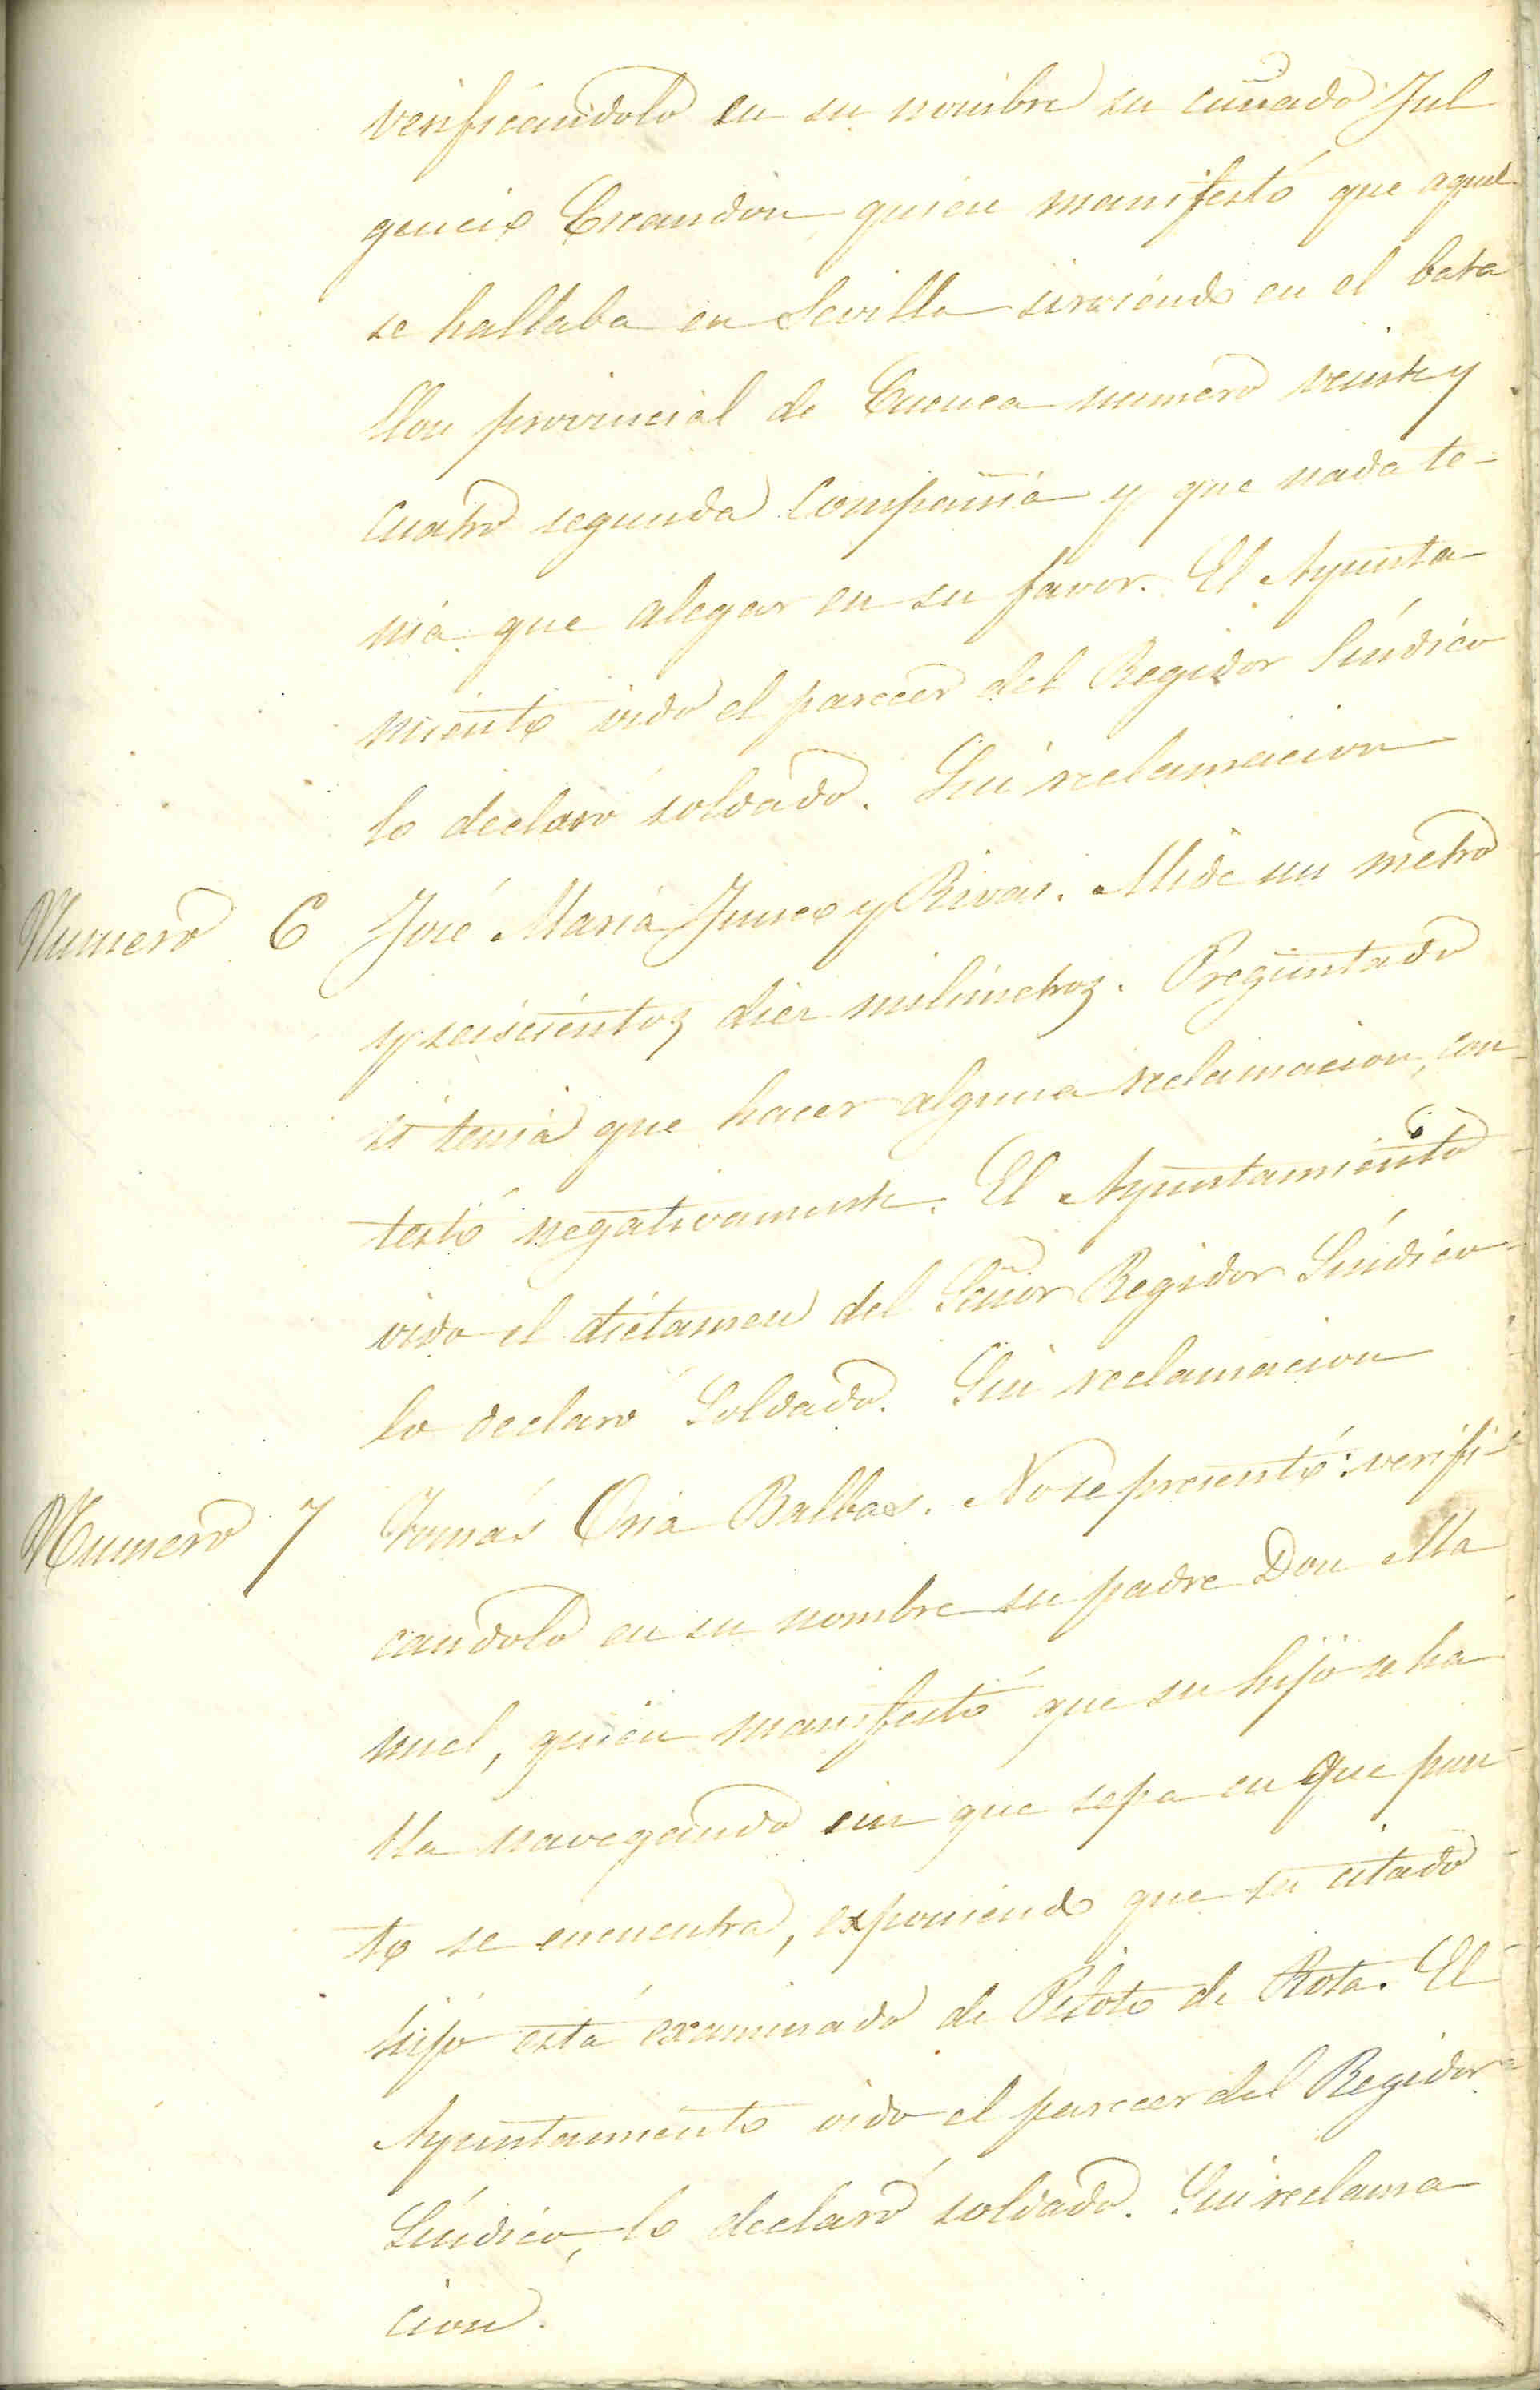 verificandolo en su nombre su cuñado Ful
gencio Escandon quien manifestó que aquel
se hallaba en Sevilla sirviendo en el bata
llon provincial de Cuenca numero veinte y
cuatro segunda Compañia y que nada te-
nia que alegar en su favor. El Ayunta-
miento oido el parecer del Regidor Síndico
lo declaró soldado. Sin reclamacion
Numero 6 José Maria Junco y Rivas. Mide un metro
y seiscientos diez milimetros. Preguntado
si tenia que hacer alguna reclamacion, con-
testó negativamente. El Ayuntamiento
oido el dictamen del Señor Regidor Síndico
lo declaró Soldado. Sin reclamacion
Numero 7 Tomás Oria Balbas. No se presentó: verifi-
candolo en su nombre su padre Don Ma
nuel, quien manifestó que su hijo se ha
lla navegando sin que sepa en que pun-
to se encuentra, exponiendo que su citado
hijo está examinado de Piloto de Rota. El
Ayuntamiento oido el parecer del Regidor
Síndico, lo declaró soldado. Sin reclama
cion.